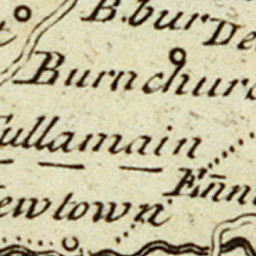 B.bur De
Burnchurc
ullamain
Enn
ewtown